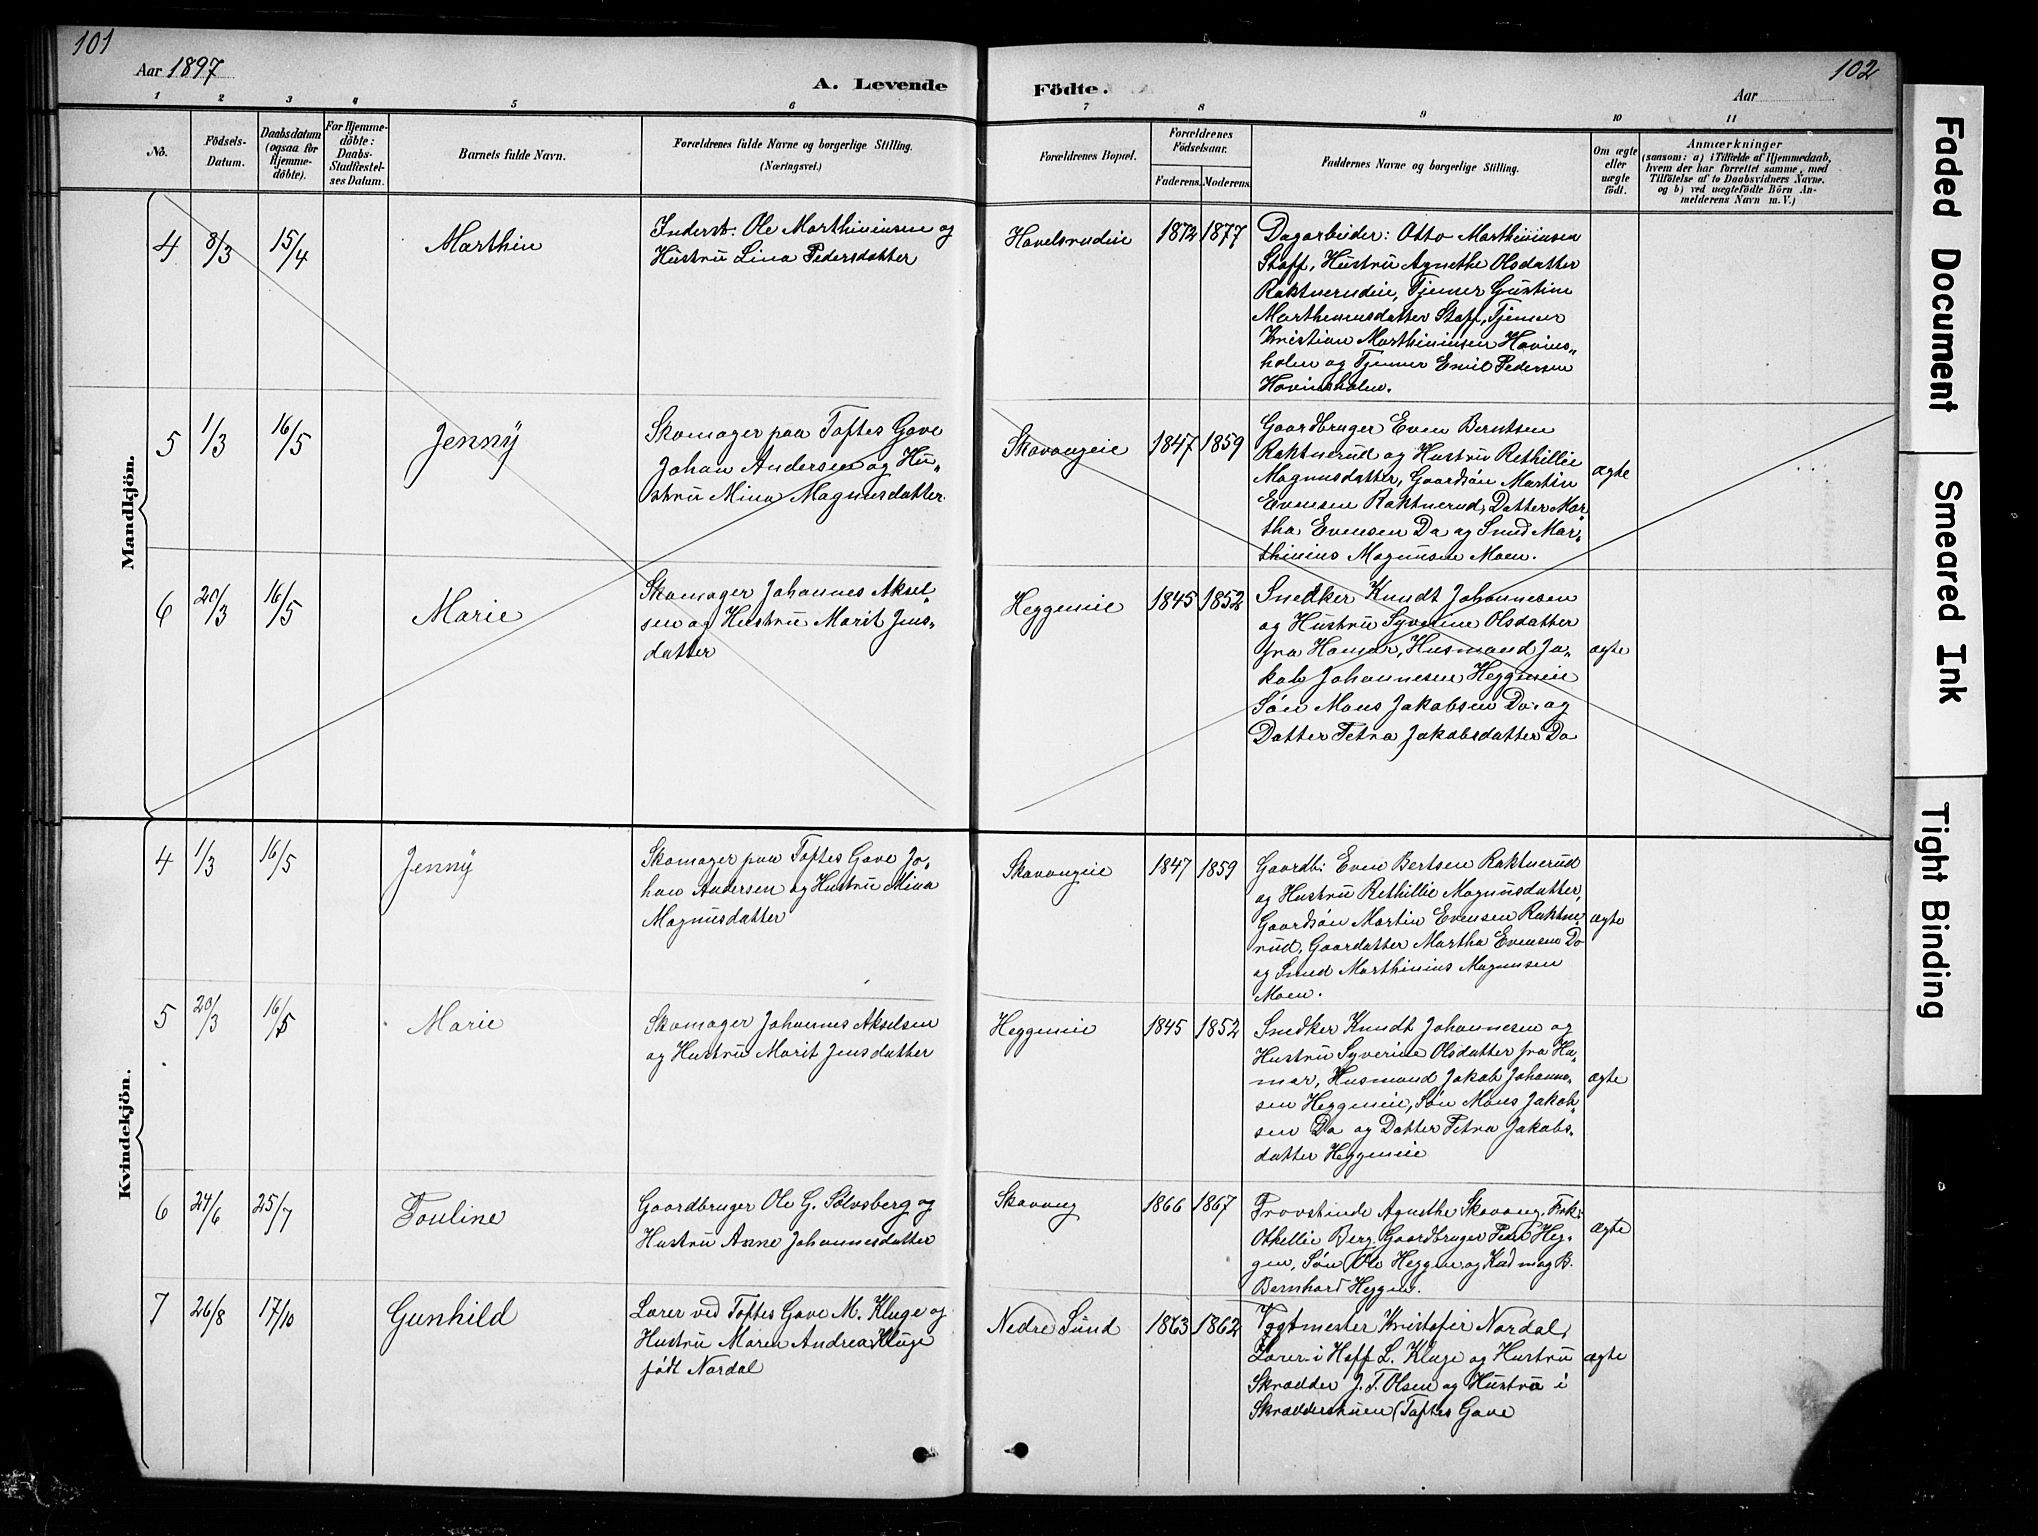 101
Aar 1897
A. Levende
Födte.
102
Aar
1 2 3 4 5 6 7 8 9 10 11
No.
Födsels-
Datum.
Daabsdatum
(ogsaa for
Hjemme-
döbte).
For Hjemme-
döbte:
Daabs-
Stadfæstel-
ses Datum.
Barnets fulde Navn.
Forældrenes fulde Navne og borgerlige Stilling.
(Næringsvei.)
Forældrenes Bopæl.
Forældrenes
Födselsaar.
Faderens.
Moderens.
Faddernes Navne og borgerlige Stilling.
Om ægte
eller
uægte
födt.
Anmærkninger
(saasom: a) i Tilfælde af Hjemmedaab,
hvem der har forrettet samme, med
Tilföielse af to Daabsvidners Navne.
og b) ved uægtefödte Börn An-
melderens Navn m. V.)
Mandkjön.
4 8/3 15/4 Marthin
Inderst: Ole Marthininsen og
Hustru Lina Pedersdatter
Hovelsrudeie 1872 1877
Dagarbeider: Otto Marthininsen
Staff, Hustru Agnethe Olsdatter
Raknerudeie, Tjener Gustine
Marthinusdatter Staff, Tjener
Kristian Marthininsen Hovins„
holm og Tjener Emil Pedersen
Hovinsholm.
5 1/3 16/5 Jenny
Skomager paa Toftes Gave
Johan Andersen og Hu„
stru Mina Magnusdatter.
Skavangeie 1847 1859
Gaardbruger Even Berntsen
Raknerud og Hustru Bethillie
Magnusdatter, Gaardsøn Martin
Evensen Raknerud, Datter Mar
tha Evensen Do og Smed Mar„
thinius Magnusen Moen.
ægte
6 20/3 16/5 Marie
Skomager Johannes Aksel„
sen og Hustru Marit Jens„
datter
Heggeneie 1845 1852
Snedker Knudt Johannesen
og Hustru Syverine Olsdatter
fra Hamar, Husmand Ja„
kob Johannesen Heggeneie
Søn Mons Jakobsen Do. og
Datter Petra Jakobsdatter Do
ægte
Kvindekjön.
4 1/3 16/5 Jenny
Skomager paa Toftes Gave Jo„
han Andersen og Hustru Mina
Magnusdatter
Skavangeie 1847 1859
Gaardb: Even Bertsen Raknerud
og Hustru Bethillie Magnusdatter,
Gaardsøn Martin Evensen Rakne
rud, Gaardatter Martha Evensen Do
og Smed Marthinius Magnusen
Moen.
ægte
5 20/3 16/5 Marie
Skomager Johannes Akselsen
og Hustru Marit Jensdatter
Heggeneie 1845 1852
Snedker Knudt Johannesen og
Hustru Syverine Olsdatter fra Ha„
mar, Husmand Jakob Johanne„
sen Heggeneie, Søn Mons Jakob„
sen Do og Datter Petra Jakobs„
datter Heggeneie
ægte
6 24/6 25/7 Pouline
Gaardbruger Ole G. Sølvsberg og
Hustru Anne Johannesdatter
Skavang 1866 1867
Provstinde Agnethe Skavang, Frk:
Othellie Berg, Gaardbruger Peder Heg„
gen, Søn Ole Heggen og
Bernhard Heggen.
ægte
7 26/8 17/10 Gunhild
Lærer ved Toftes Gave M. Kluge og
Hustru Maren Andrea Kluge
født Nordal
Nedre Sund 1863 1862
Kristofer Nordal,
Lærer i Hoff L. Kluge og Hustru
Skrædder J. T. Olsen og Hustru i
Skrædderstuen (Toftes Gave
ægte
Faded Document
Smeared Ink
Tight Binding